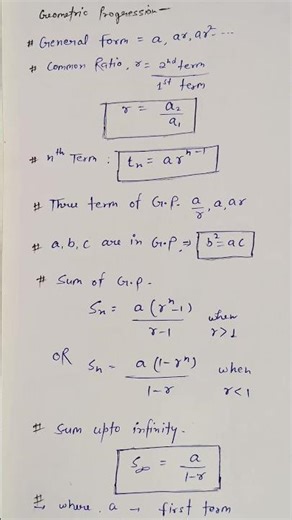 Geometric Progression -
# General form = a, ar, ar² ...
# Common Ratio, r = 2nd term / 1st term
r = a₂ / a₁
# nth Term : tₙ = a rⁿ⁻¹
# Three term of G.P. a/r, a, ar
# a, b, c are in G.P. ⇒ b² = ac
# Sum of G.P.
Sₙ = a(rⁿ-1) / r-1 when r>1
OR Sₙ = a(1-rⁿ) / 1-r when r<1
# Sum upto infinity.
S∞ = a / 1-r
where a → first term